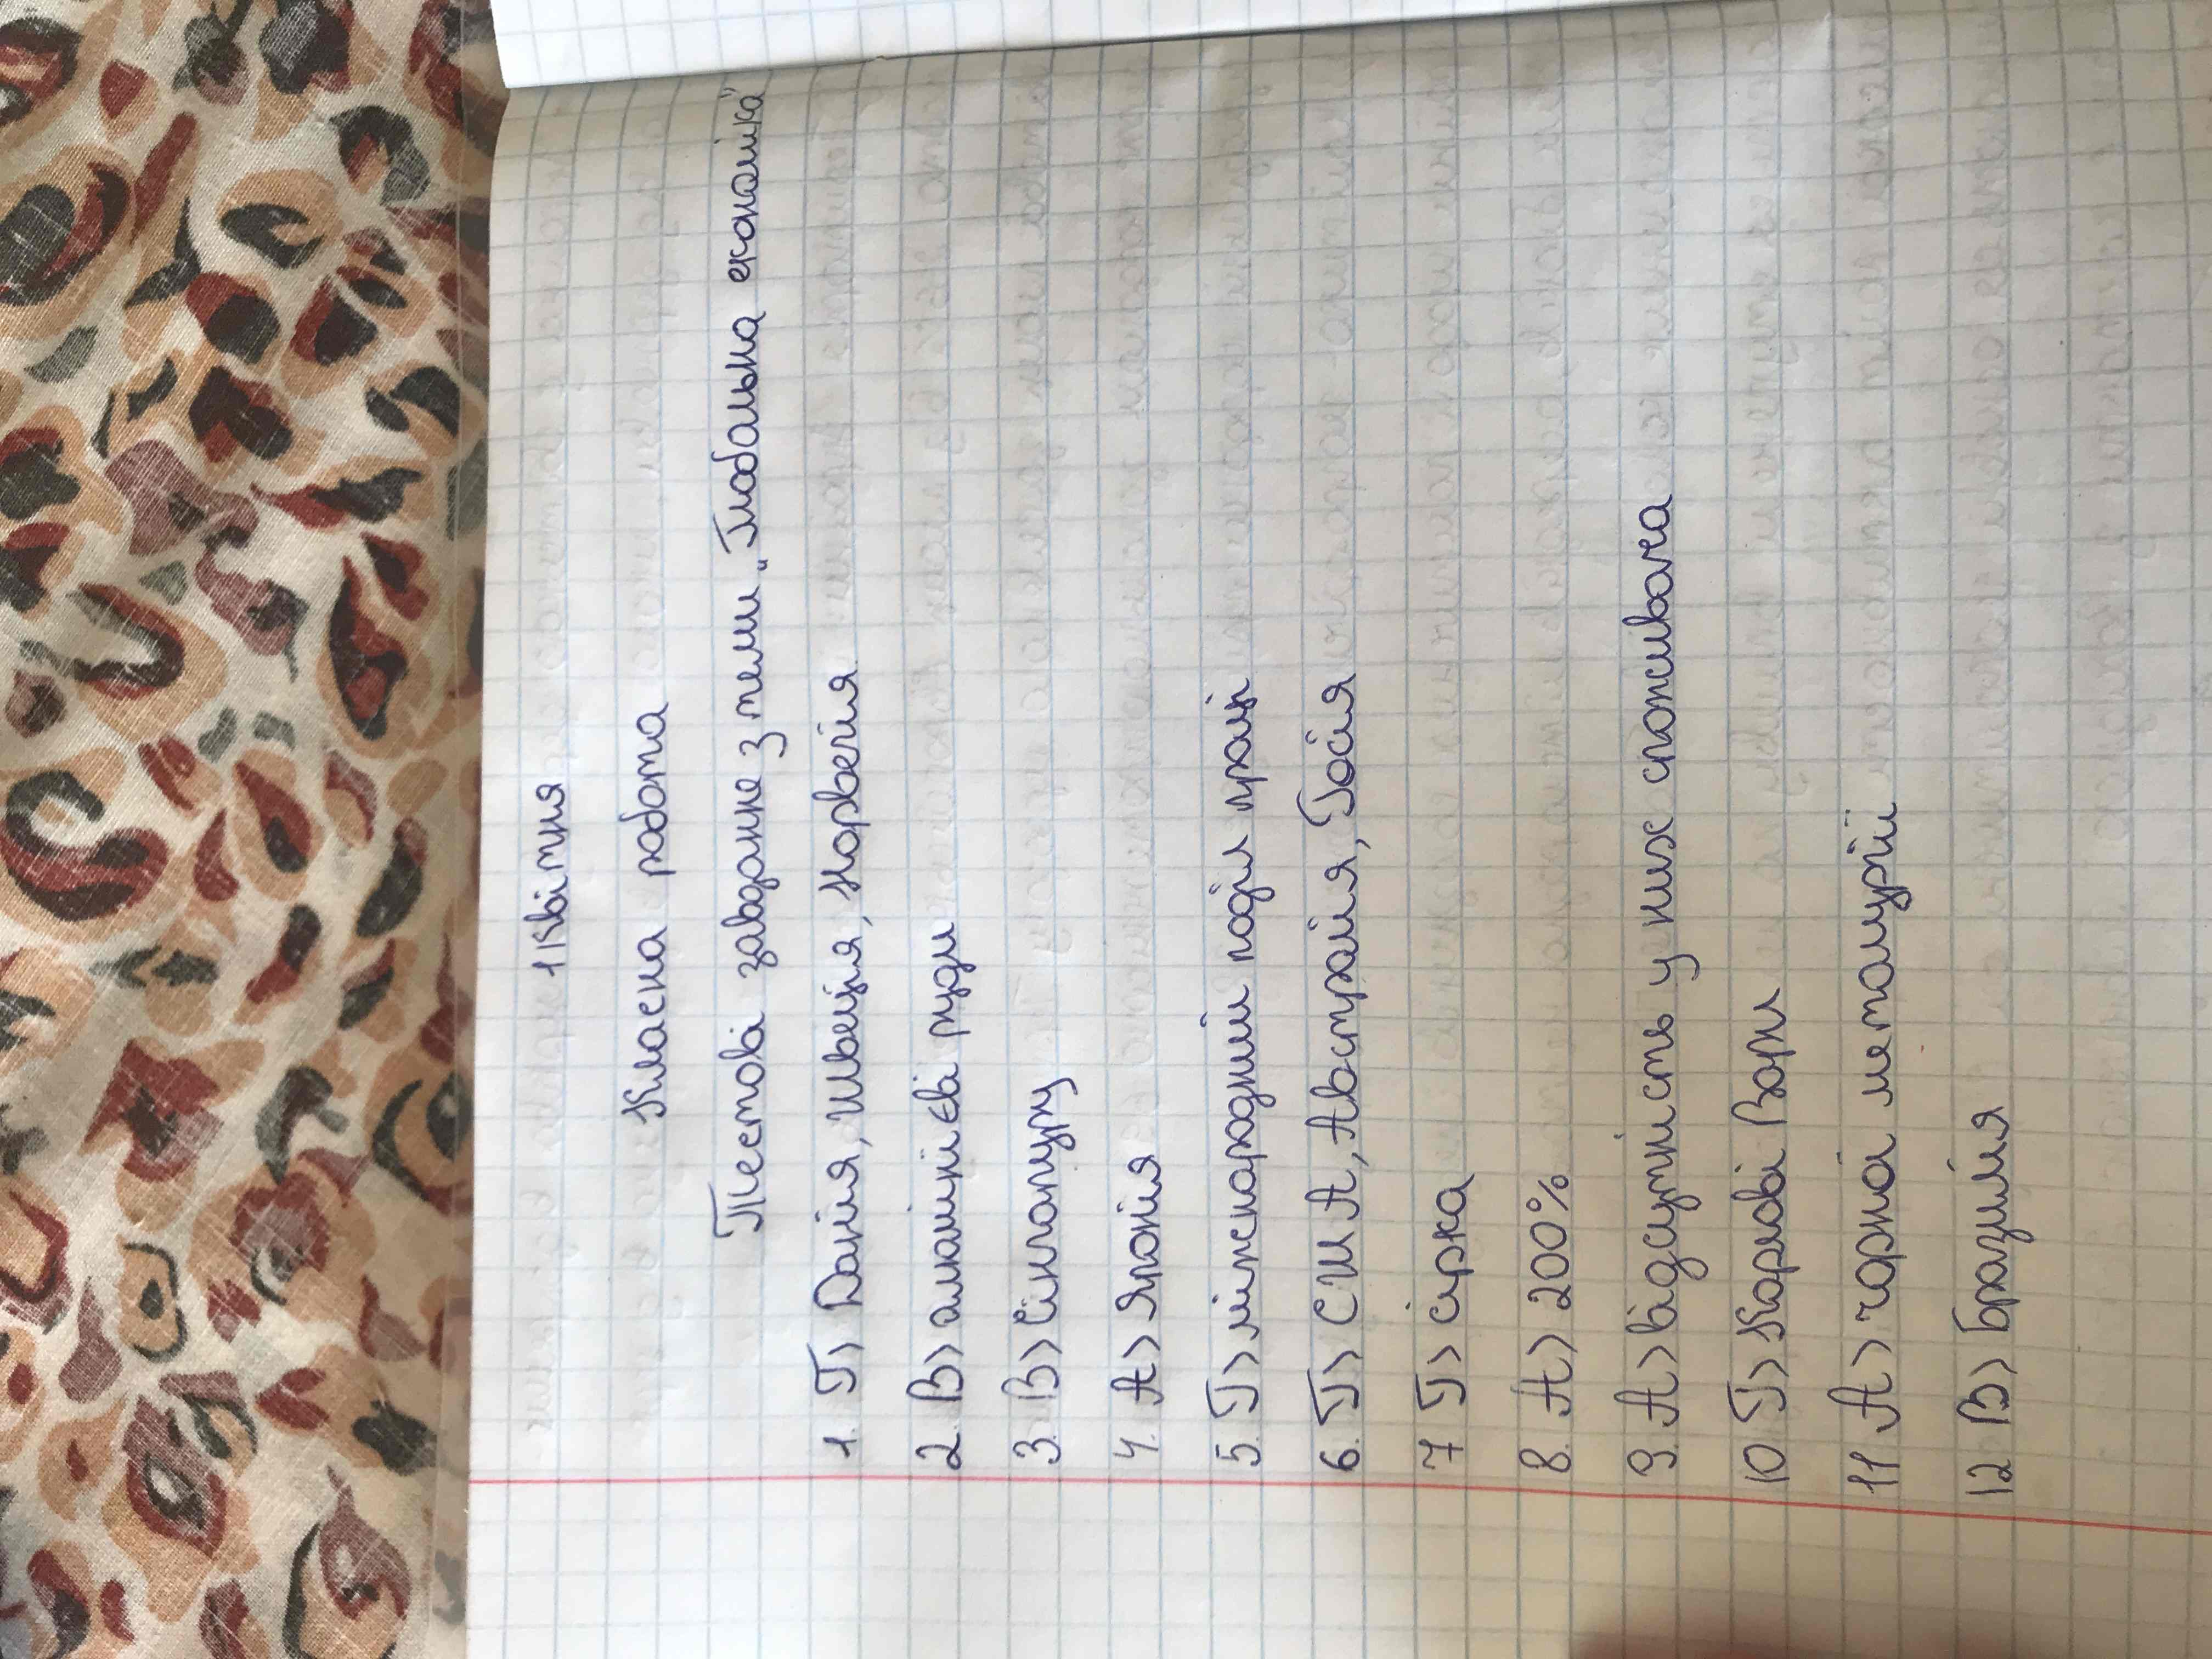 1 квітня
Класна робота
Тестові завдання з теми „Глобальна економіка"
1. Г> Данія, Швеція, Норвегія
2. В> алюмінієві руди
3. В> Сінгапуру
4. А> Японія
5. Г> міжнародний поділ праці
6. Г> США, Австралія, Росія
7 Г> сірка
8. А> 200%
9. А> відсутність у них споживача
10 Г> Карпові Вари
11 А> чорної металургії
12 В> Бразилія